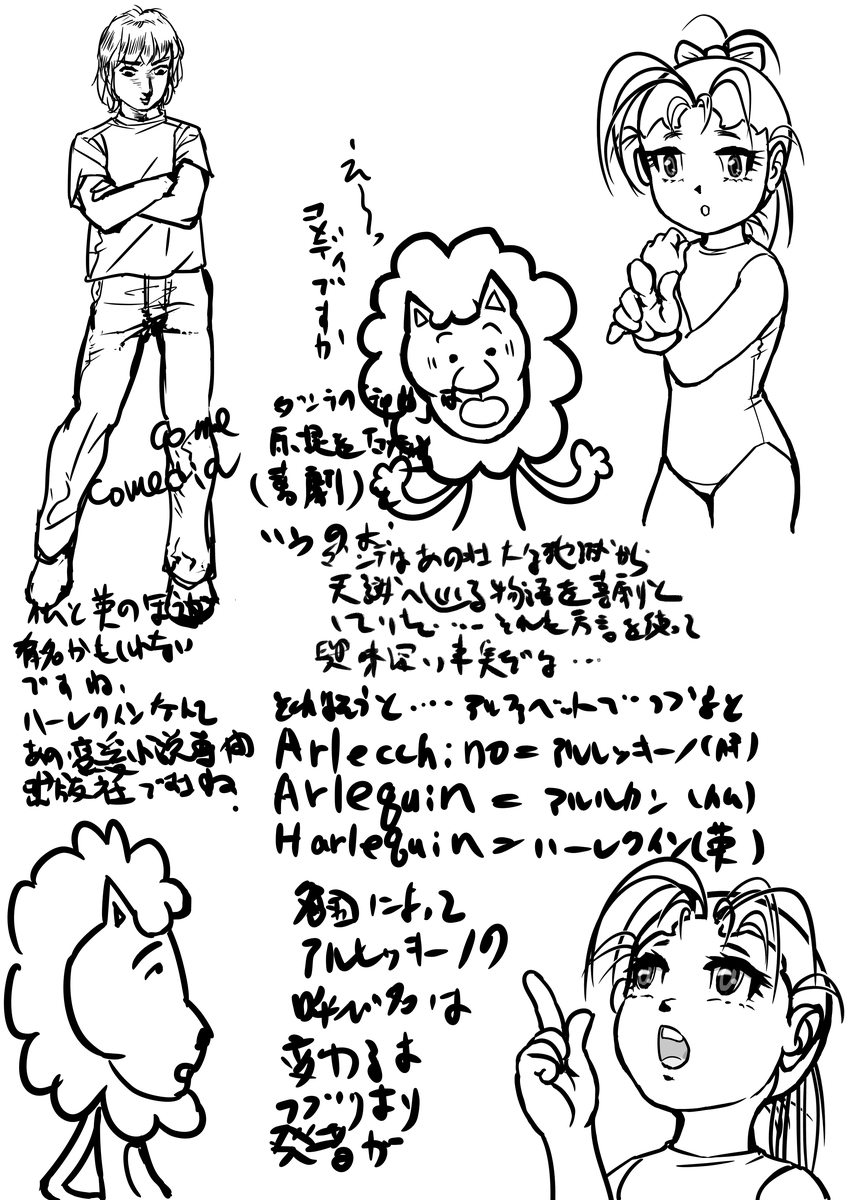 えー
コメディですか
ダンテの「神曲」は
原題を
(喜劇)と
いうの
come
comedia
本
ダンテはあの壮大な地獄から
天識へ到る物語を喜劇と
していた……それを方言を使って
興味深い事実だな…
仏と英のほうが
有名かもしれない
ですね、
ハーレクインなんて
あの恋愛小説専門
出版社ですね.
それはそうと…・アルファベットでつづると
Arlecchino=アルレッキーノ(伊)
Arlequin=アルルカン(仏)
Harlequin=ハーレクイン(英)
各国によって
アルレッキーノの
呼び名は
変わるよ
つづりより
発音が